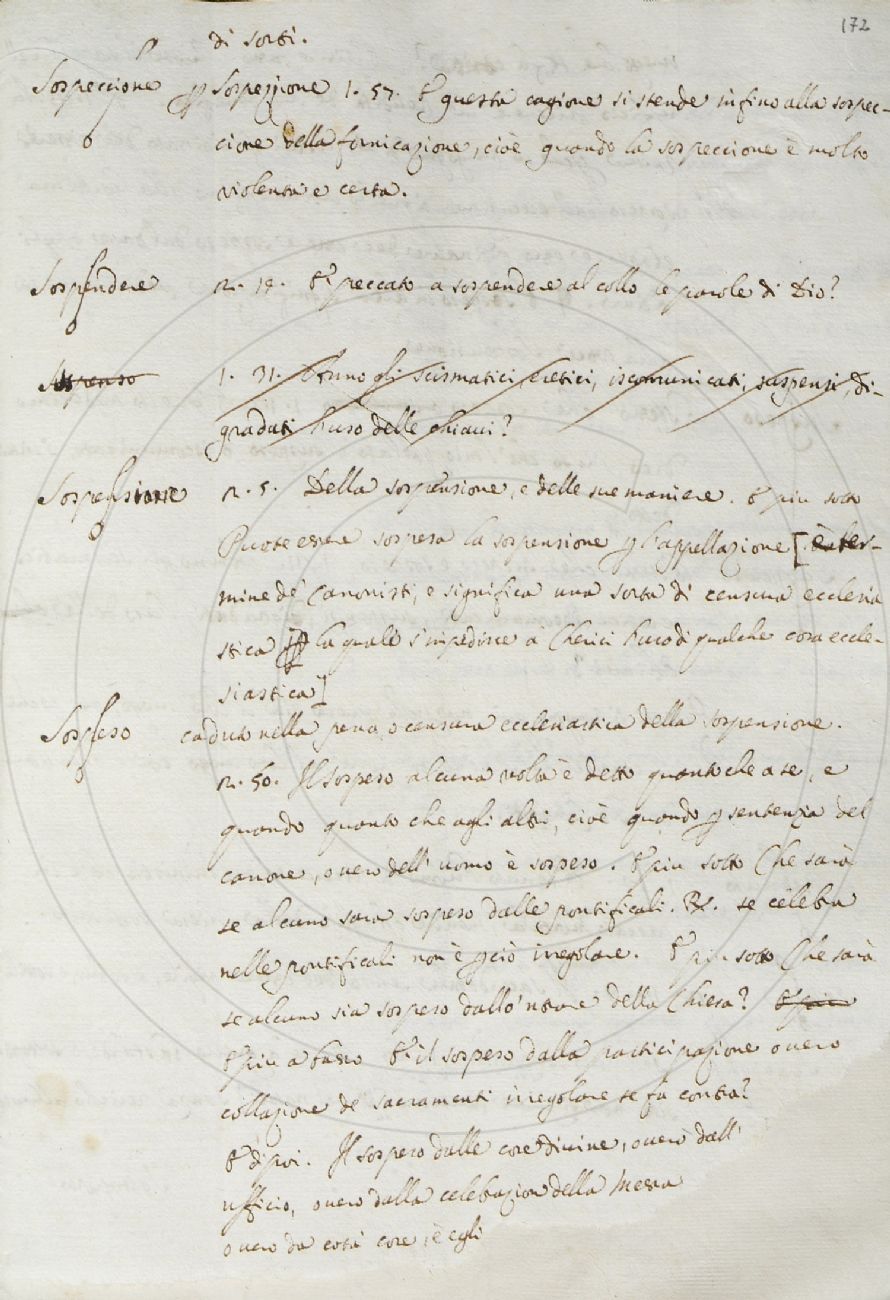 172
di sorti.
Sospeccione p Sospezione 1. 57. E questa cagione si stende infino alla sospec-
cione della fornicazione, cioè quando la sospeccione è molto
violenta e certa.
Sospendere 2. 18. E' peccato a sospendere al collo le parole di Dio?
Sospenso 1. 31. Anno gli scismatici eretici, iscomunicati, suspensi, di-
gradati l'uso delle chiavi?
Sospensione 2. 5. Della sospensione, e delle sue maniere. E piu sotto
Puote essere sospesa la sospensione p l'appellazione [è ter-
mine de' Canonisti, e significa una sorta di censura ecclesia
stica p la quale s'impedisce a Cherici l'uso di qualche cosa eccle-
siastica]
Sospeso caduto nella pena, o censura ecclesiastica della sospensione.
2. 50. Il sospeso alcuna volta è detto quanto che a se, e
quando quanto che agli altri, cioè quando p sentenzia del
canone, o vero dell' uomo è sospeso. E piu sotto Che sarà
se alcuno sarà sospeso dalle pontificali. R. se celebra
nelle pontificali non è p ciò irregolare. E piu sotto Che sarà
se alcuno sia sospeso dallo 'ntrare della Chiesa? E piu
E piu a basso E' il sospeso dalla participazione o vero
collazione de' sacramenti irregolare se fa contra?
E dipoi. Il sospeso dalle cose divine, o vero dall'
ufficio, o vero dalla celebrazion della Messa
o vero da cotà cose, è egli